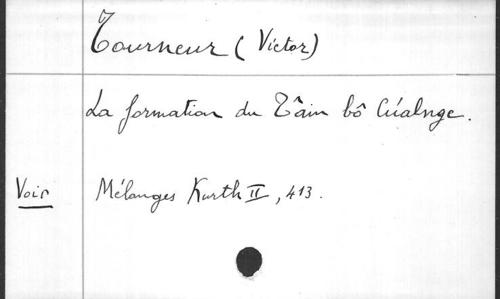 Tourneur (Victor)
La formation du Táin bô Cúalnge.
Voir Mélanges Kurth II, 413.